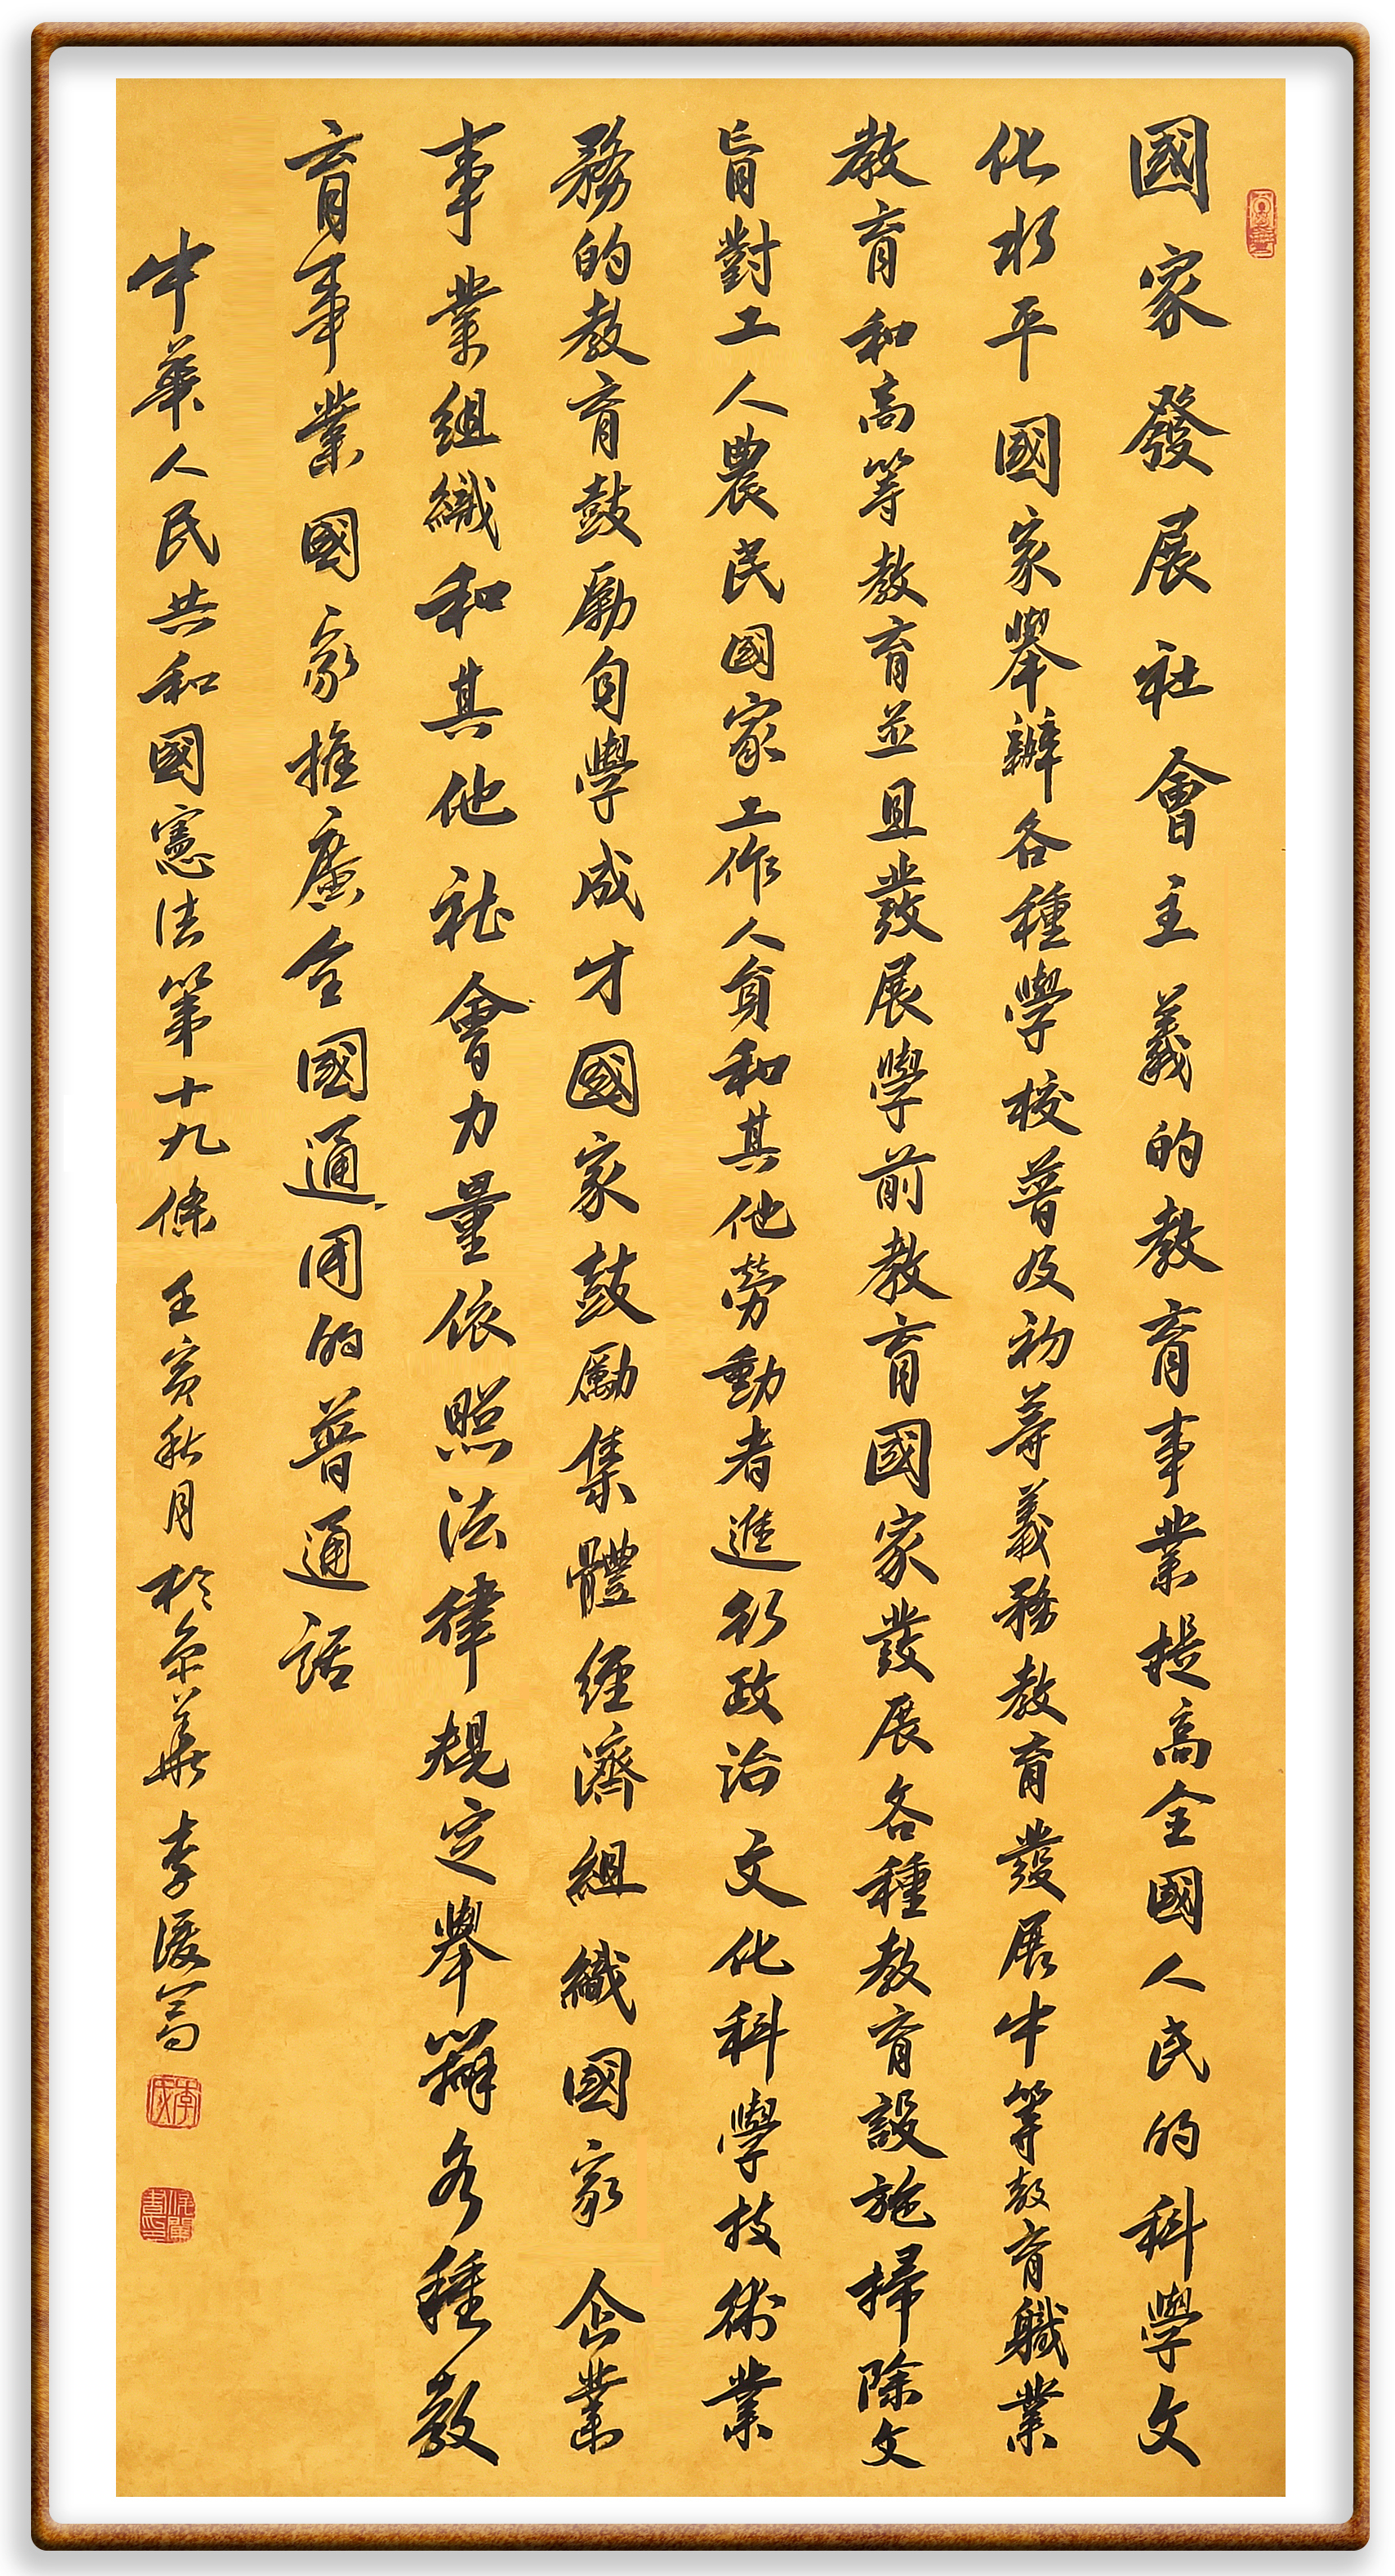 國家發展社會主義的教育事業提高全國人民的科學文
化水平國家舉辦各種學校普及初等義務教育發展中等教育職業
教育和高等教育並且發展學前教育國家發展各種教育設施掃除文
旨對工人農民國家工作人員和其他勞動者進行政治文化科學技術業
務的教育鼓勵自學成才國家鼓勵集體經濟組織國家企業
事業組織和其他社會力量依照法律規定舉辦各種教
育事業國家推廣全國通用的普通話
中華人民共和國憲法第十九條 壬寅秋月於京華李